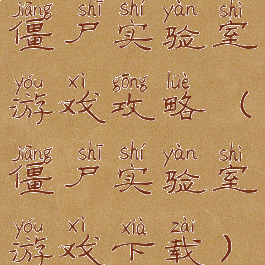 jiāng shī shí yàn shì
僵尸实验室
yóu xì gōng lüè
游戏攻略（
jiāng shī shí yàn shì
僵尸实验室
yóu xì xià zǎi
游戏下载）